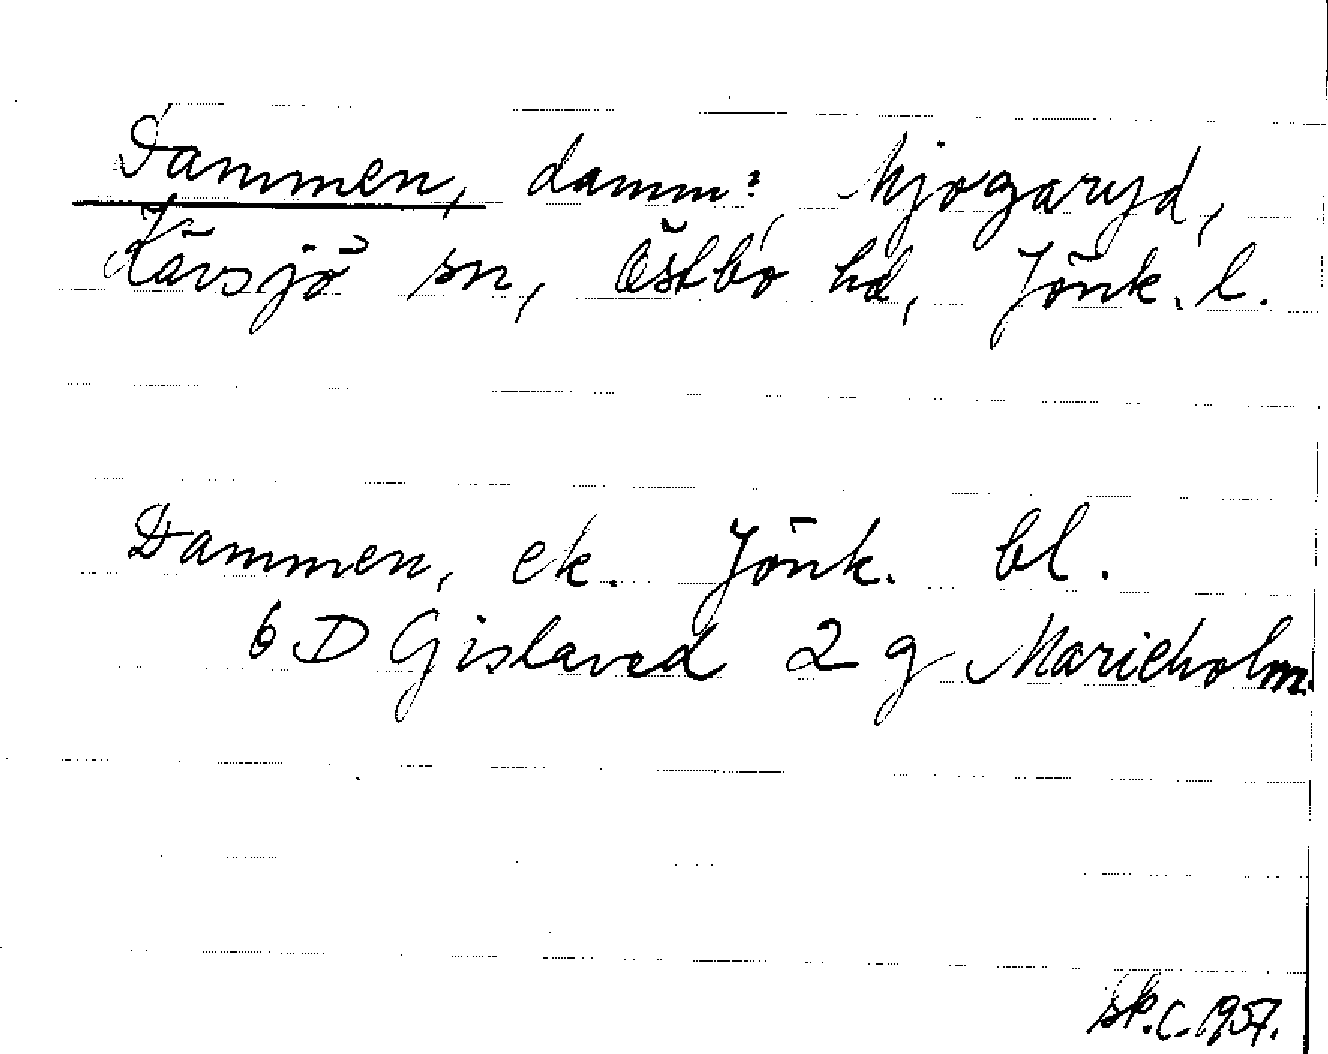 Dammen, damm: Mjogaryd,
Kävsjö sn, Östbo hd, Jönk. l.
Dammen, ek. Jönk. bl.
6 D Gislaved 2 g Marieholm.
sk. c. 1957.